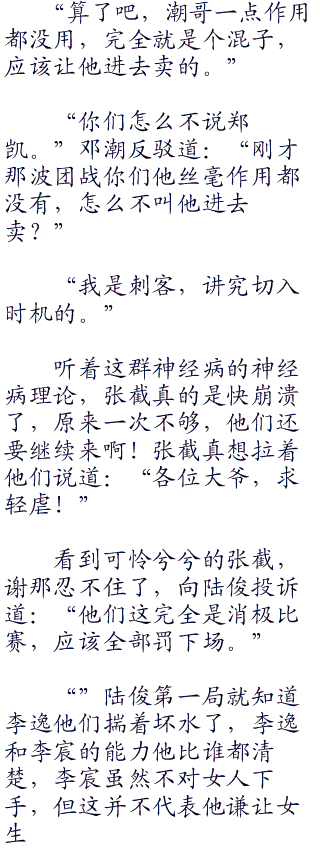 “算了吧，潮哥一点作用
都没用，完全就是个混子，
应该让他进去卖的。”
“你们怎么不说郑
凯。”邓潮反驳道：“刚才
那波团战你们他丝毫作用都
没有，怎么不叫他进去
卖？”
“我是刺客，讲究切入
时机的。”
听着这群神经病的神经
病理论，张截真的是快崩溃
了，原来一次不够，他们还
要继续来啊！张截真想拉着
他们说道：“各位大爷，求
轻虐！”
看到可怜兮兮的张截，
谢那忍不住了，向陆俊投诉
道：“他们这完全是消极比
赛，应该全部罚下场。”
“”陆俊第一局就知道
李逸他们揣着坏水了，李逸
和李宸的能力他比谁都清
楚，李宸虽然不对女人下
手，但这并不代表他谦让女
生